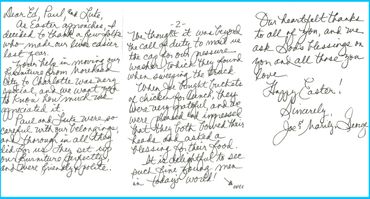 Dear Ed, Paul, and Lute,
As Easter approaches, I
decided to thank a few folks
who made our lives easier
last year.
Your help in moving our
furniture from
to Charlotte was very
special, and we want you
to know how much we
appreciated it.
Paul and Lute were so
careful with our belongings,
and thorough in all they
did for us. They set up
our furniture perfectly,
and were friendly & polite.
-2-
We thought it was beyond
the call of duty to mail us
the cap for our pressure
washer which they found
when sweeping the truck.
When we bought buckets
of chicken for lunch, they
were very grateful, and we
were pleased and impressed
that they both bowed their
heads and asked a
blessing for their food.
It is delightful to see
such fine young men
in today's world!
over
Our heartfelt thanks
to all of you, and we
ask God's blessings on
you and all those you
love.
Happy Easter!
Sincerely,
Joe &